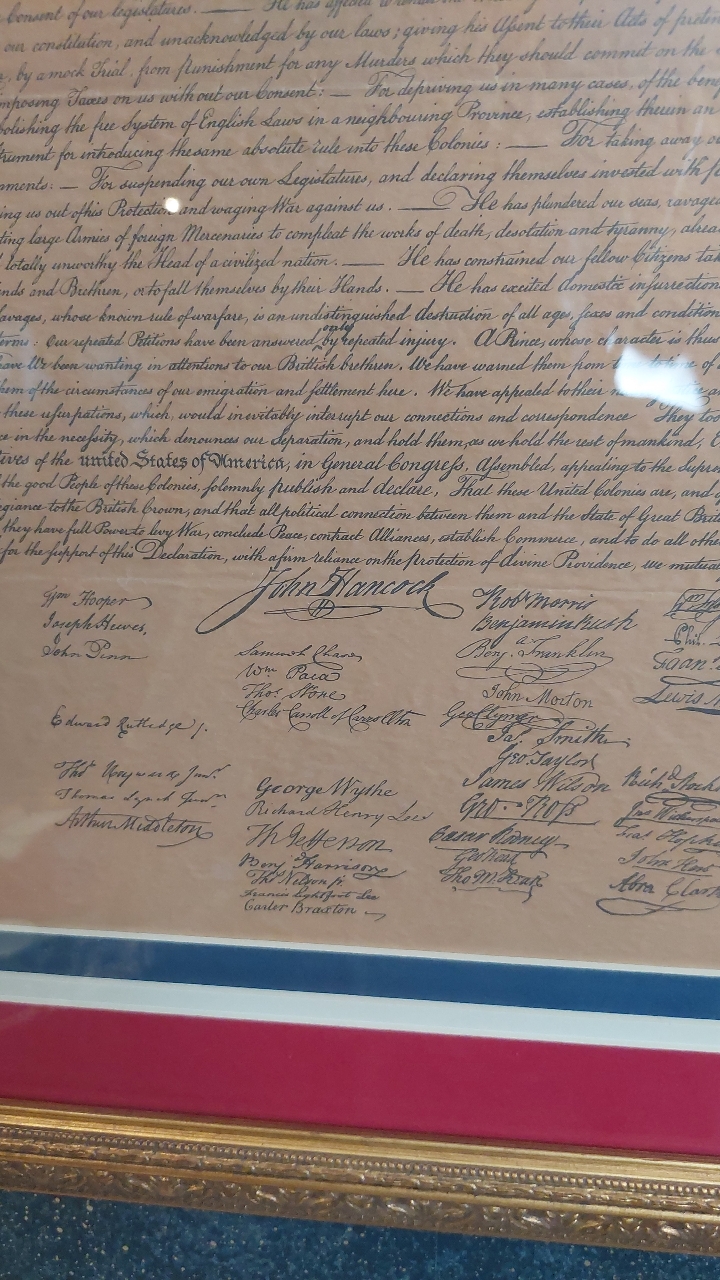 Consent of our legislatures. — He has affected to
our constitution, and unacknowledged by our laws; giving his Assent to their Acts of
, by a mock Trial, from Punishment for any Murders which they should commit on the
mposing Taxes on us without our Consent: — For depriving us in many cases, of the
bolishing the free System of English Laws in a neighbouring Province, establishing therein an
trument for introducing the same absolute rule into these Colonies : — For taking away
nments: — For suspending our own Legislatures, and declaring themselves invested with
ing us out of his Protection and waging War against us. — He has plundered our seas, ravaged
ting large Armies of foreign Mercenaries to compleat the works of death, desolation and tyranny, alrea
totally unworthy the Head of a civilized nation. — He has constrained our fellow Citizens tak
nds and Brethren, or to fall themselves by their Hands. — He has excited domestic insurrection
avages, whose known rule of warfare, is an undistinguished destruction of all ages, sexes and condition
terms : Our repeated Petitions have been answered only by repeated injury. A Prince, whose character is thus
have We been wanting in attentions to our Brittish brethren. We have warned them from
hem of the circumstances of our emigration and settlement here. We have appealed to their
these usurpations, which, would inevitably interrupt our connections and correspondence They too
ce in the necessity, which denounces our Separation, and hold them, as we hold the rest of mankind,
tives of the united States of America, in General Congress, Assembled, appealing to the Supre
the good People of these Colonies, solemnly publish and declare, That these United Colonies are, and
egiance to the British Crown, and that all political connection between them and the State of Great Brit
they have full Power to levy War, conclude Peace, contract Alliances, establish Commerce, and to do all oth
for the support of this Declaration, with a firm reliance on the Protection of divine Providence, we mutual
John Hancock
Wm Hooper
Joseph Hewes,
John Penn
Edward Rutledge /.
Thos Heyward Junr.
Thomas Lynch Junr.
Arthur Middleton
Samuel Chase
Wm Paca
Thos Stone
Charles Carroll of Carrollton
George Wythe
Richard Henry Lee
Th Jefferson
Benj Harrison
Thos Nelson jr.
Francis Lightfoot Lee
Carter Braxton
Robt Morris
Benjamin Rush
Benj. Franklin
John Morton
Geo Clymer
Jas. Smith
Geo. Taylor
James Wilson
Geo. Ross
Caesar Rodney
Geo Read
Tho M:Kean
Phil.
Lewis
Richd Stock
Jno Witherspoo
Fras Hopk
John Hart
Abra Clark